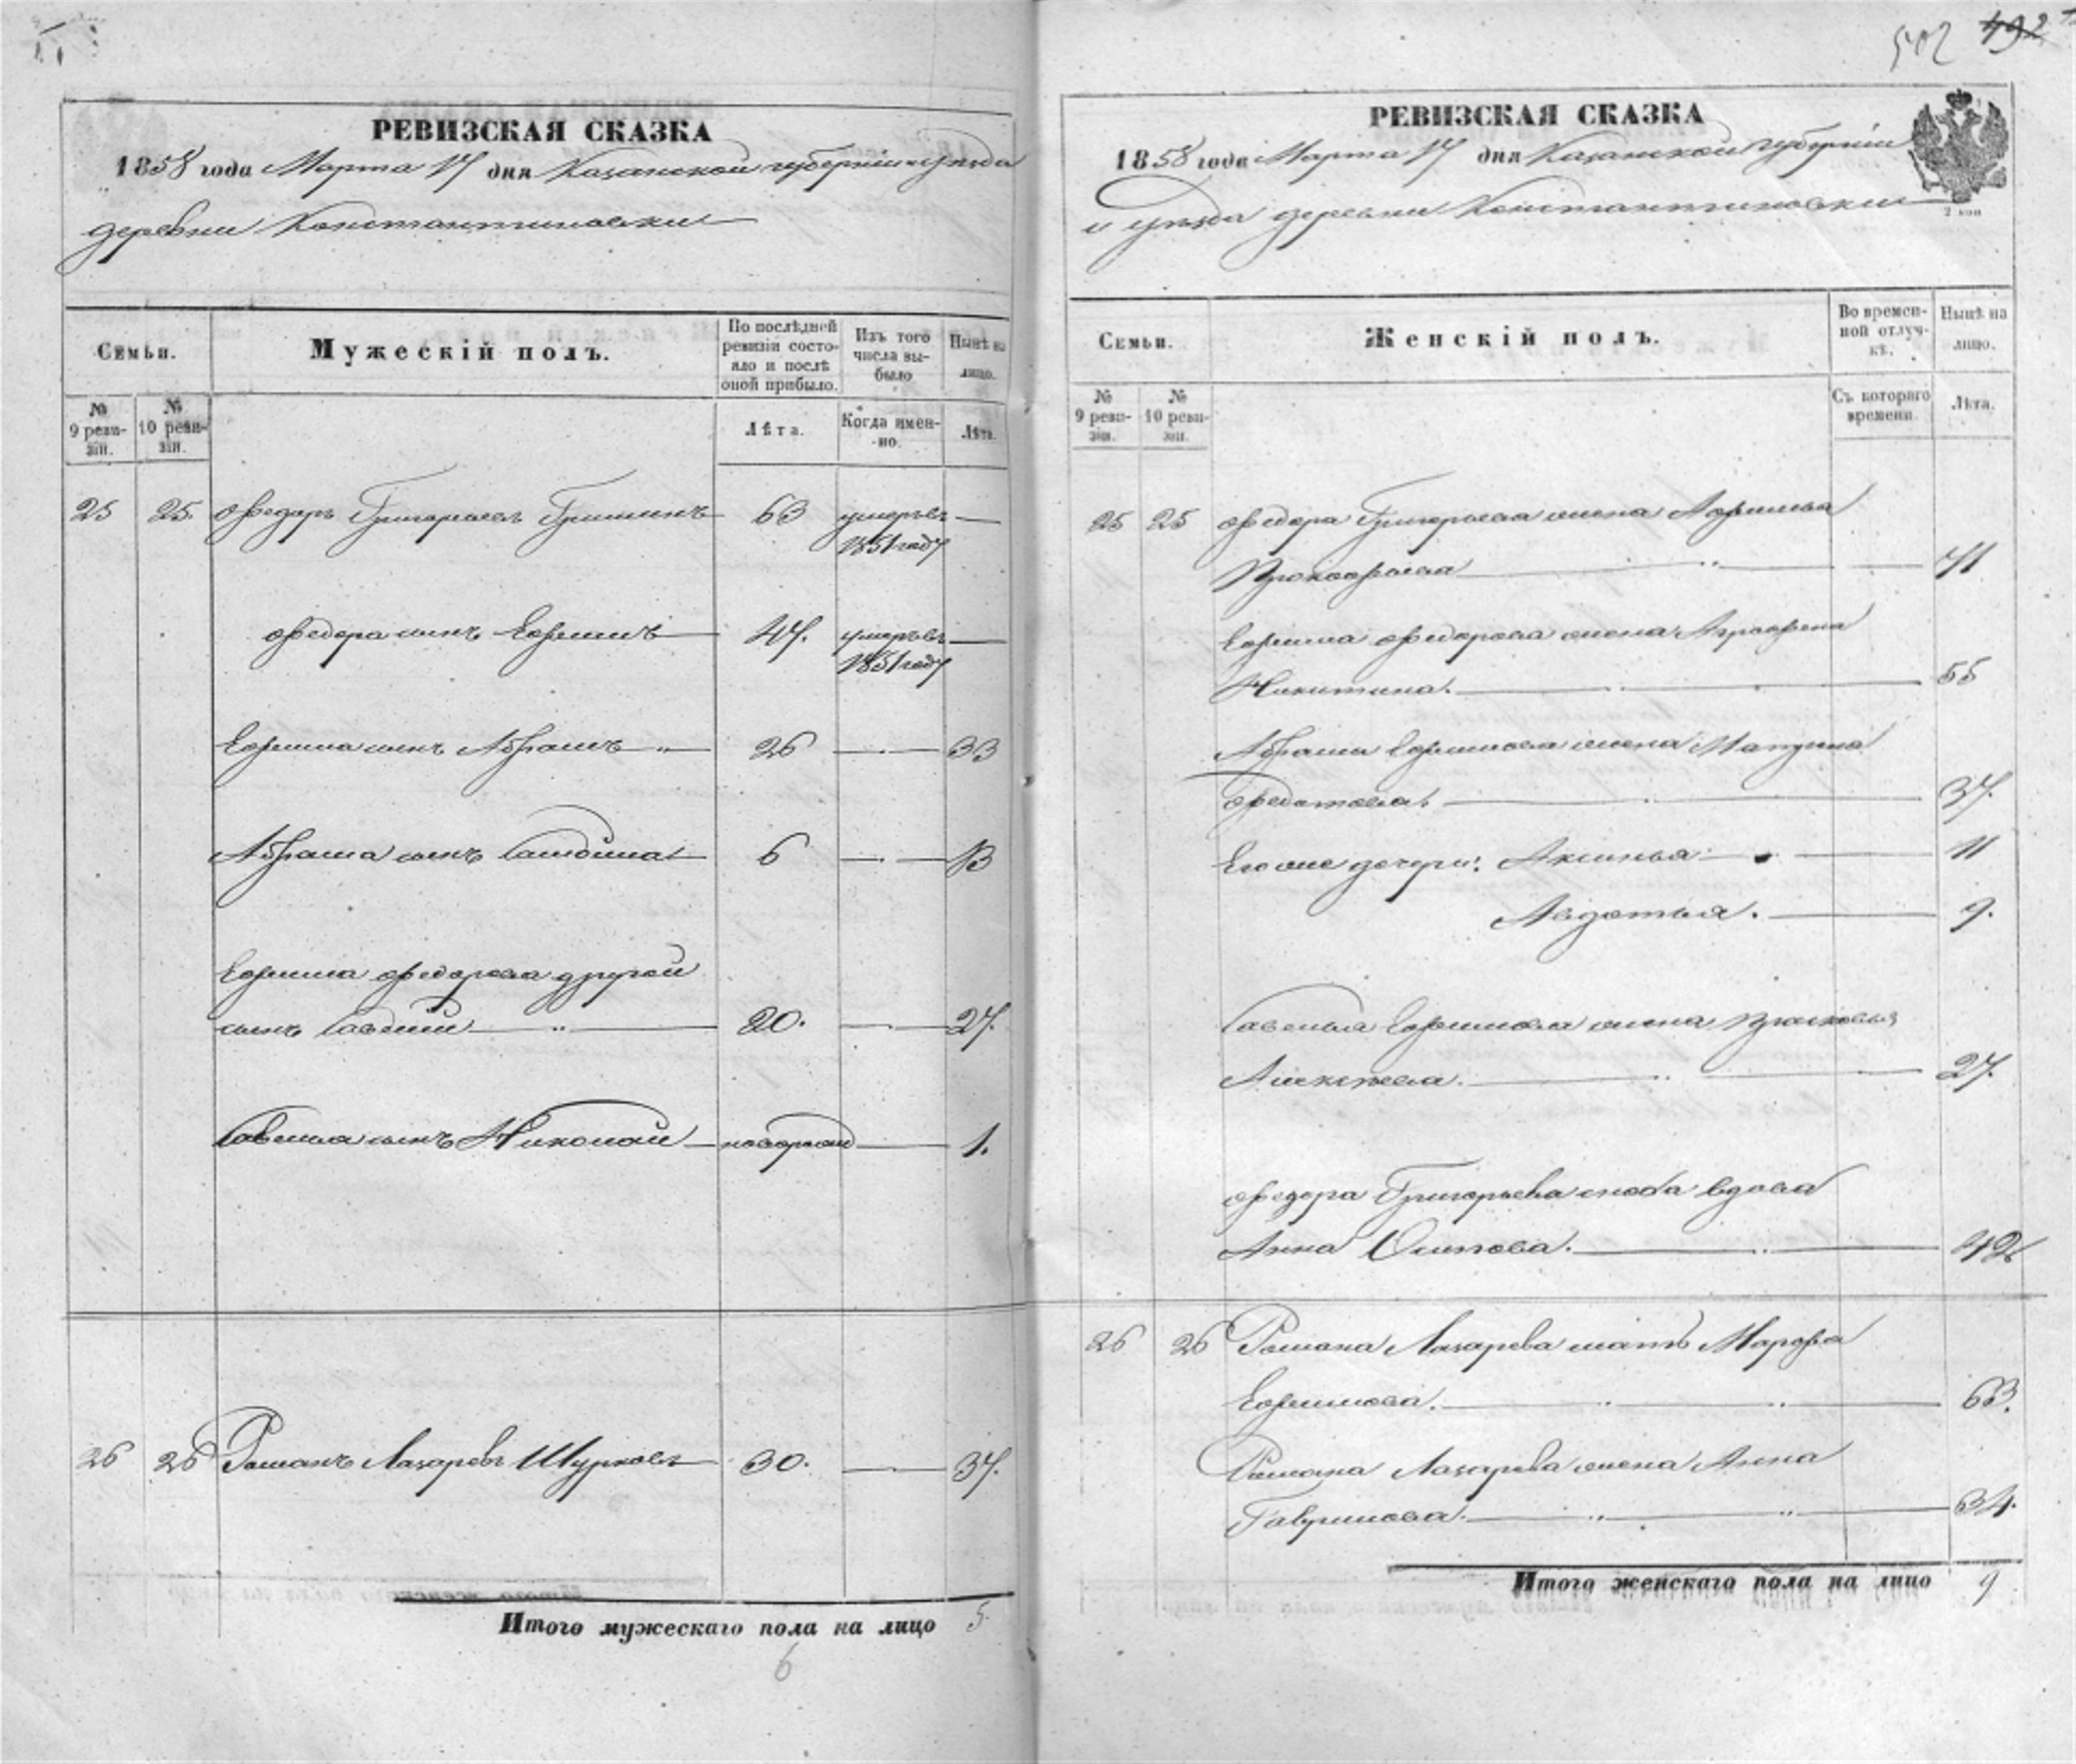 РЕВИЗСКАЯ СКАЗКА
1858 года Марта 17 дня Казанской губернии и уѣзда
деревни Константиновки
Семьи.
Мужескій полъ.
По послѣдней ревизіи состояло и послѣ оной прибыло.
Изъ того числа выбыло
Нынѣ на лицо.
№ 9 ревизіи.
№ 10 ревизіи.
Лѣта.
Когда именно.
Лѣта.
25 25. Федоръ Григорьевъ Гришинъ 63 умеръ въ 1851 году
Федора сынъ Ефимъ 47. умеръ въ 1851 году
Ефима сынъ Абрамъ 26 33
Абрама сынъ 6 13
Ефима Федорова другой
сынъ 20. 27.
Савелья сынъ Николай новорож 1.
26 26 Романъ Лазаревъ Шурковъ 30. 37.
Итого мужескаго пола на лицо 5.
6
502 492
РЕВИЗСКАЯ СКАЗКА
1858 года Марта 17 дня Казанской губерніи
и уѣзда деревни Константиновки
2 коп
Семьи.
Женскій полъ.
Во временной отлучкѣ.
Нынѣ на лицо.
№ 9 ревизіи.
№ 10 ревизіи.
Съ котораго времени.
Лѣта.
25 25 Федора Григорьева жена Афимья
Прокофьева 71
Ефима Федорова жена Аграфена
Никитина. 55
Абрама Ефимова жена Матрена
Федотова. 37.
Его же дочери: Аксинья 11
Авдотья. 9.
Савелья Ефимова жена Прасковья
Алексѣева. 27.
Федора Григорьева сноха вдова
Анна Осипова. 42
26 26 Романа Лазарева мать Марфа
Ефимова. 63.
Романа Лазарева жена Анна
Гаврилова. 34.
Итого женскаго пола на лицо 9